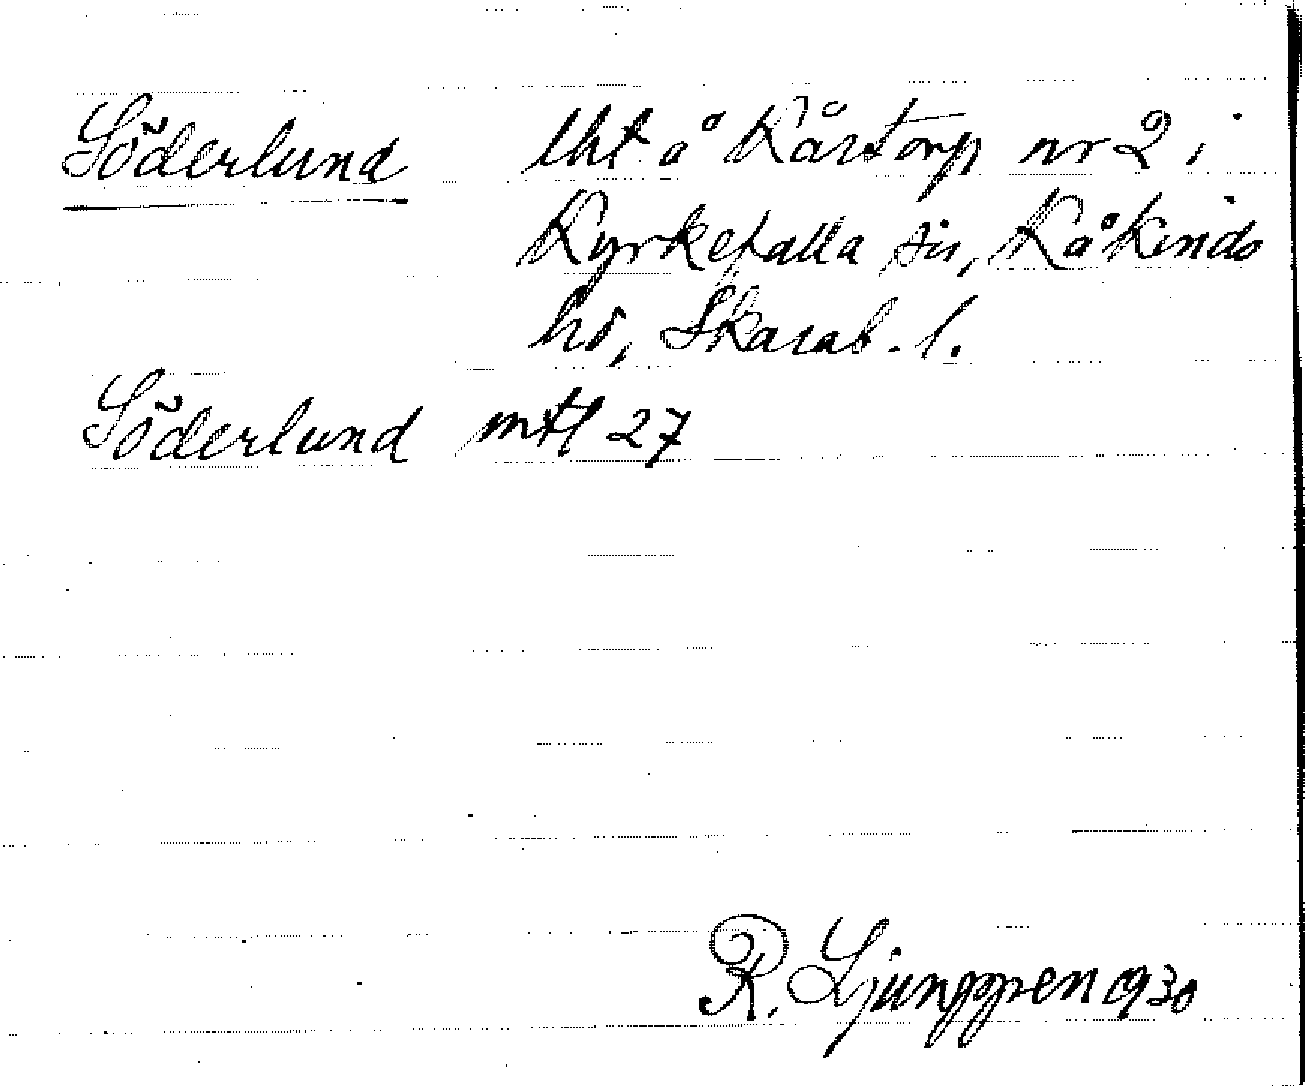 Söderlund lht å Kårtorp nr 2 i
Kyrkefalla sn, Kåkinds
hd, Skarab. l.
Söderlund mtl 27
R. Ljunggren 1930